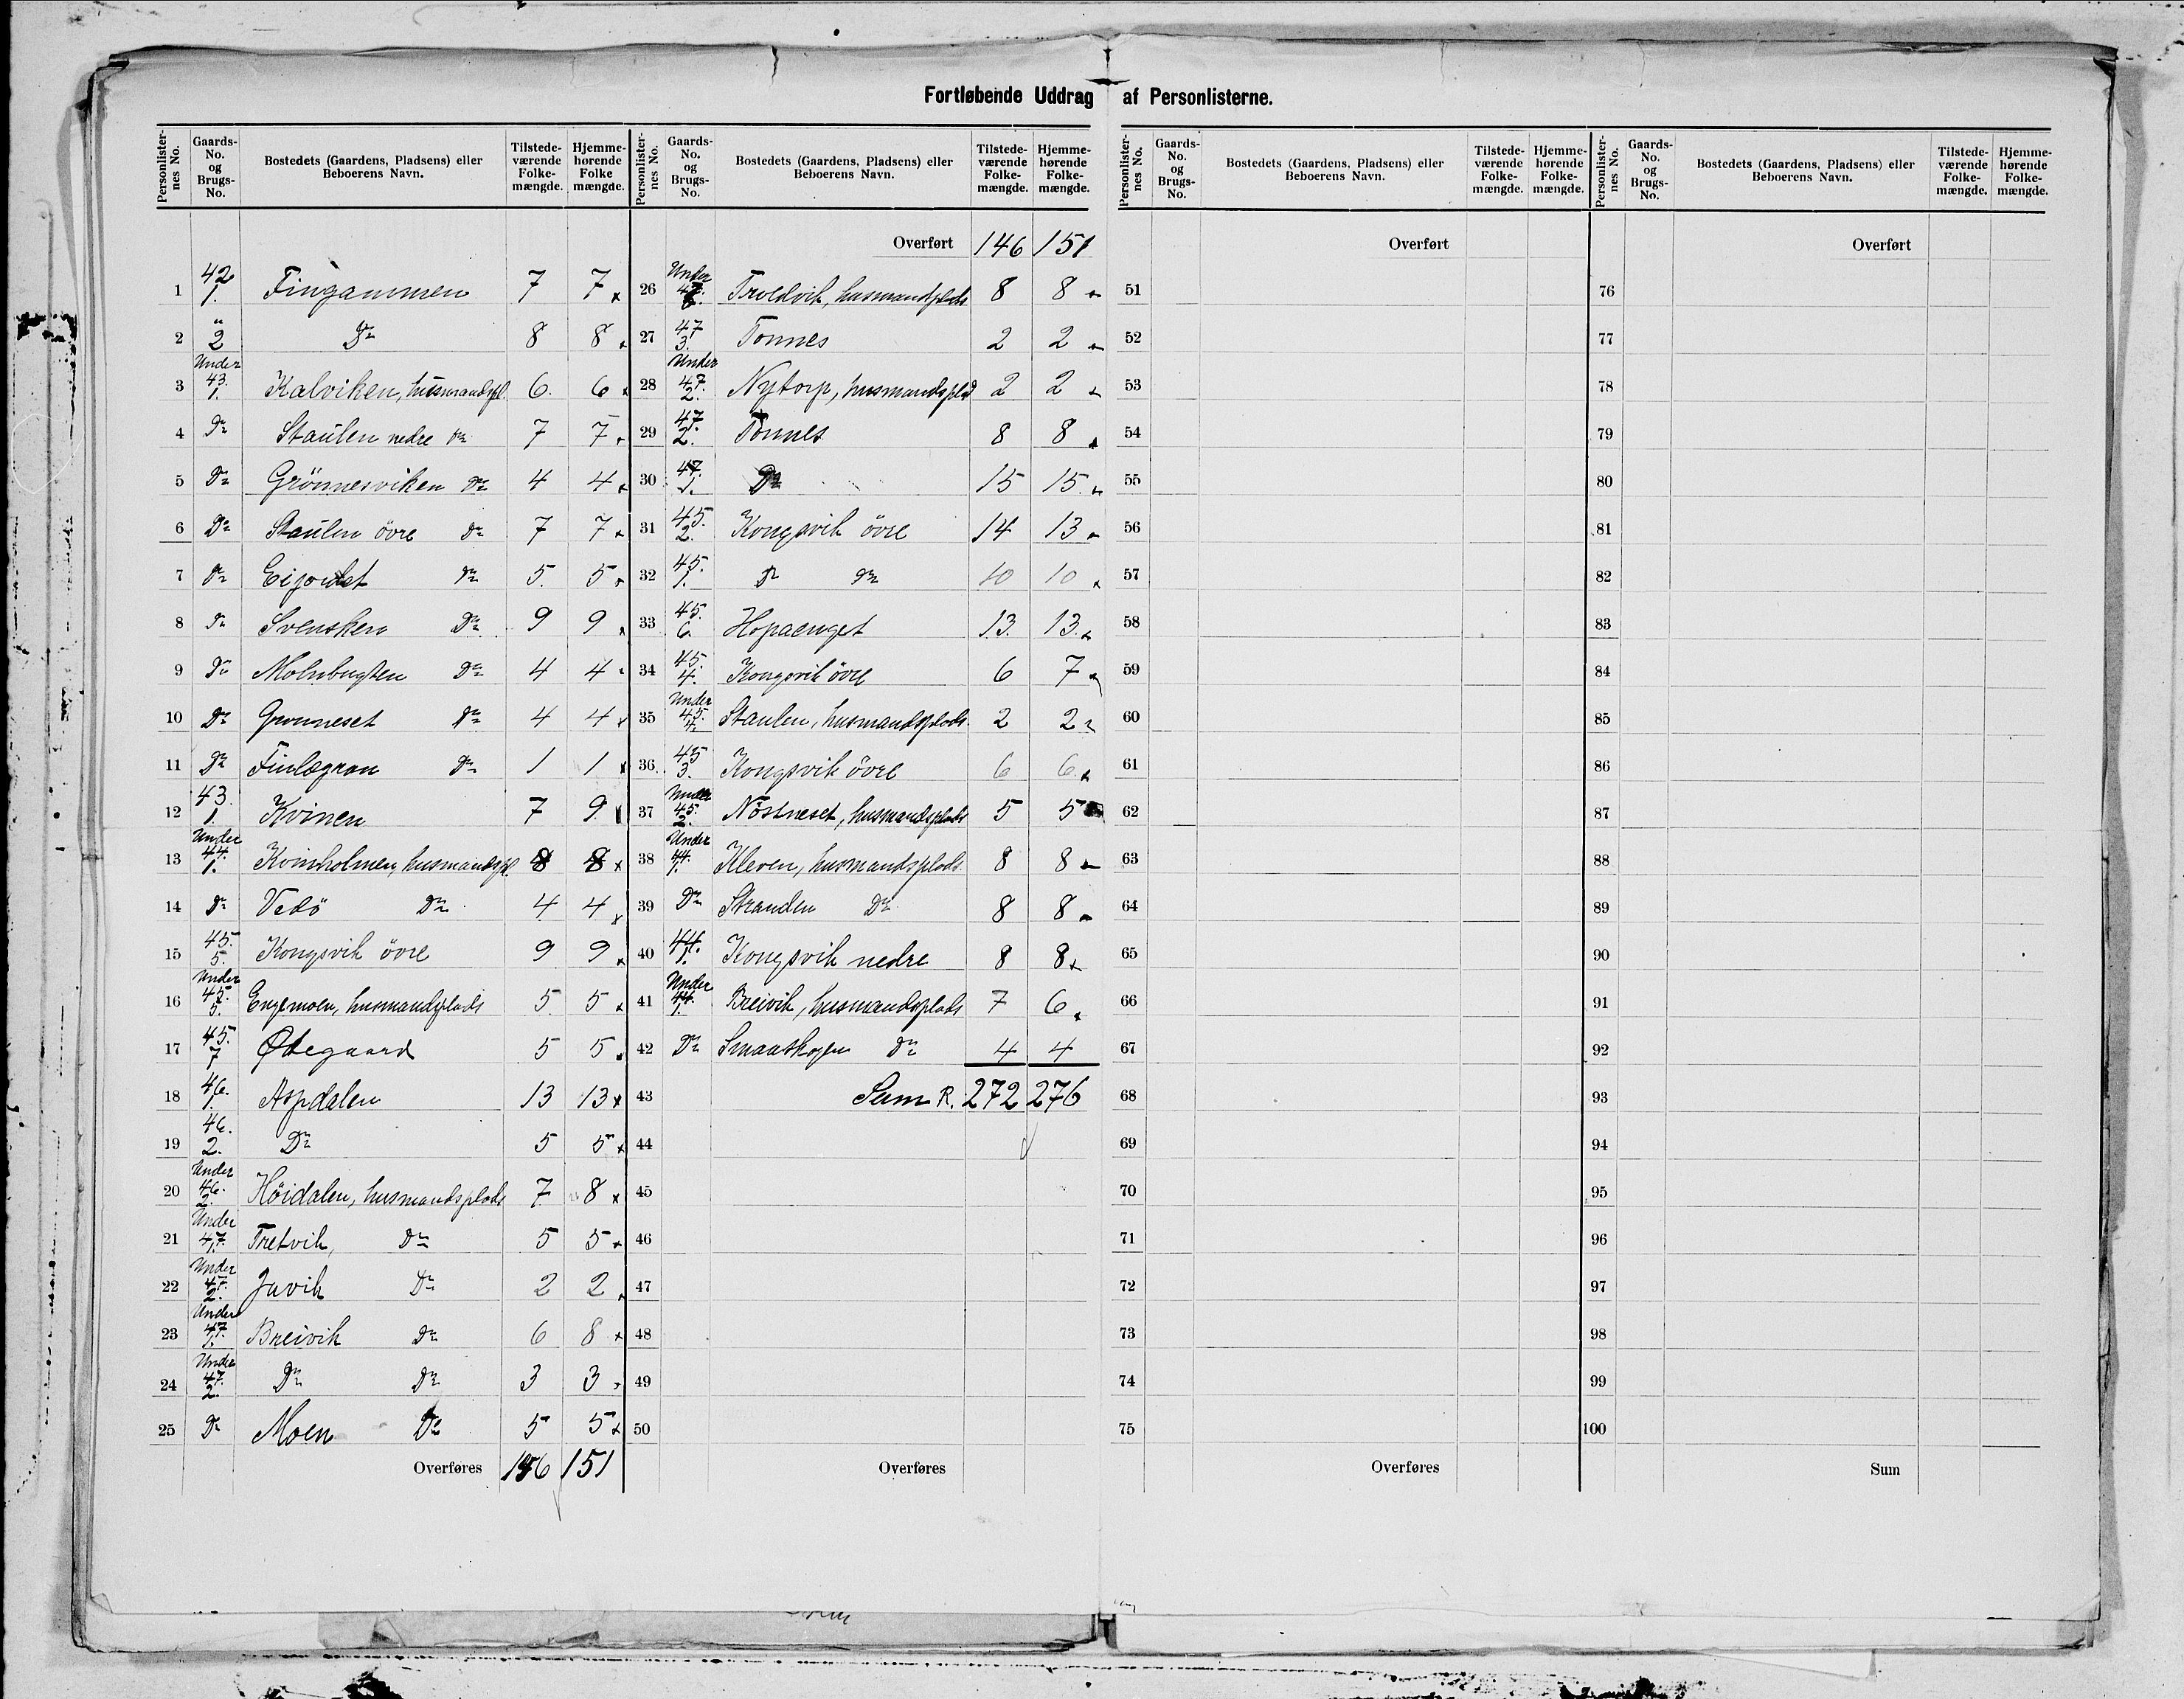 Fortløbende Uddrag af Personlisterne.
Personlisternes No. Gaards-No. og Brugs-No. Bostedets (Gaardens, Pladsens) eller Beboerens Navn. Tilstedeværende Folkemængde. Hjemmehørende Folkemængde.
1 42 1. Fingammen 7 7
2 " 2 Do 8 8
3 Under 43. 1. Kalviken, husmandspl. 6. 6
4 Do Staulen nedre Do 7 7
5 Do Grönnesviken Do 4 4
6 Do Staulen övre Do 7 7
7 Do Eijordet Do 5. 5
8 Do Svensken Do 9 9
9 Do Molnbugten Do 4 4
10 Do Grønneset Do 4 4
11 Do Finlægran Do 1 1
12 43. 1. Kvinen 7 9
13 Under 44. 1. Kvinholmen, husmandspl. 8 8
14 Do Vedö Do 4 4
15 45. 5. Kongsvik övre 9 9
16 Under 45. 5. Engemoen, husmandsplads 5 5
17 45. 7 Ødegaard 5 5
18 46. 1. Aspdalen 13 13
19 46. 2. Do 5 5
20 Under 46. 2. Höidalen, husmandsplads 7 8
21 Under 47. 1. Tretvik, Do 5 5
22 Under 47. 2. Javik Do 2 2
23 Under 47. 1. Breivik Do 6 8
24 Under 47. 2. Do Do 3 3
25 Do Moen Do 5 5
Overføres 146 151
Overført 146 151
26 Under 47. Troldvik, husmandsplads 8 8
27 47 3. Tonnes 2 2
28 Under 47. 2. Nytorp, husmandsplad 2 2
29 47. 2. Tonnes 8 8
30 47. 1. Do 15 15
31 45. 2. Kongsvik övre 14 13
32 45. 1. Do Do 10 10
33 45. 6. Hopaenget 13. 13.
34 45. 4. Kongsvik övre 6 7
35 Under 45. 4. Staulen, husmandsplads. 2 2
36 45 3. Kongsvik övre 6 6
37 Under 45. 2. Nöstneset, husmandsplads 5 5
38 Under 44. 1. Kleven, husmandsplads. 8 8
39 Do Stranden Do 8 8
40 44. 1. Kongsvik nedre 8 8
41 Under 44. 1. Breivik, husmandsplads 7 6
42 Do Smaaskogen Do 4 4
43 Sum R. 272 276
44
45
46
47
48
49
50
Overføres
Personlisternes No. Gaards-No. og Brugs-No. Bostedets (Gaardens, Pladsens) eller Beboerens Navn. Tilstedeværende Folkemængde. Hjemmehørende Folkemængde.
Overført
51
52
53
54
55
56
57
58
59
60
61
62
63
64
65
66
67
68
69
70
71
72
73
74
75
Overføres
Overført
76
77
78
79
80
81
82
83
84
85
86
87
88
89
90
91
92
93
94
95
96
97
98
99
100
Sum